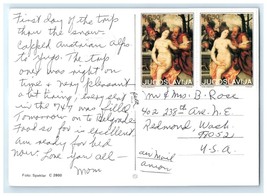 First day of the trip
thru the snow-
capped Austrian Alps
to Yugo. The trip
over was right on
time & very pleasant
but tiring, every seat
in the 747 was filled
Tomorrow on to Belgrade
Food so far is excellent
Am ready for bed
now. Love you all —
Mom
JUGOSLAVIJA
JUGOSLAVIJA
Mr & Mrs. B. Rose
402 238th Ave. N.E.
Redmond, Wash.
98052
U.S.A.
air mail
avion